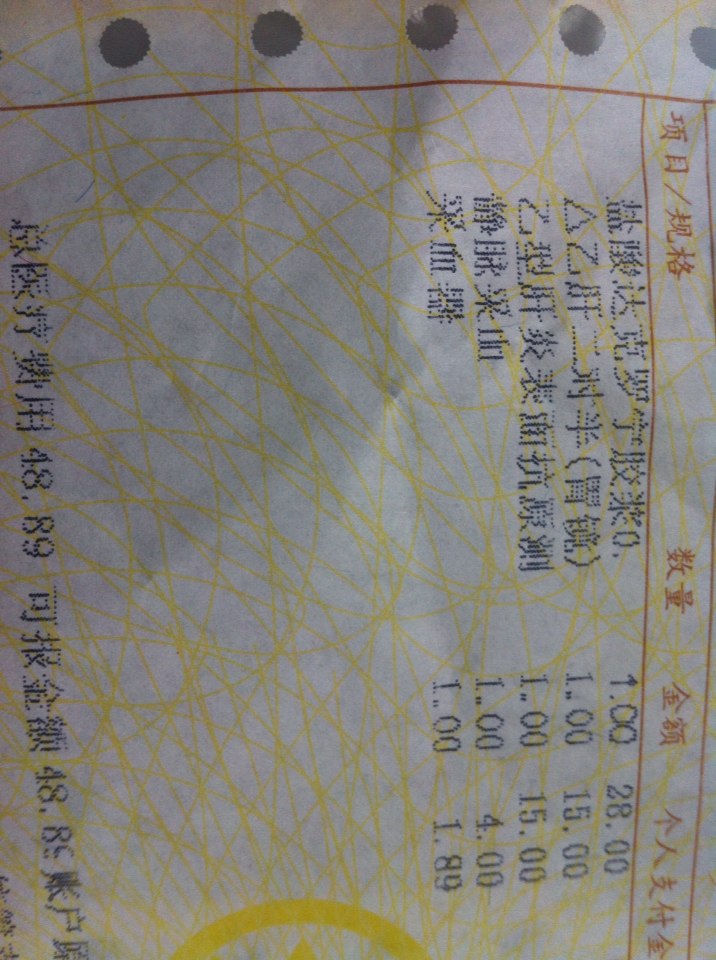 项目/规格 数量 金额 个人支付金
盐酸达克罗宁胶浆0. 1.00 28.00
△乙肝二对半(胃镜) 1.00 15.00
乙型肝炎表面抗原测 1.00 15.00
静脉采血 1.00 4.00
采血器 1.00 1.89
总医疗费用 48.89 可报金额 48.89 账户